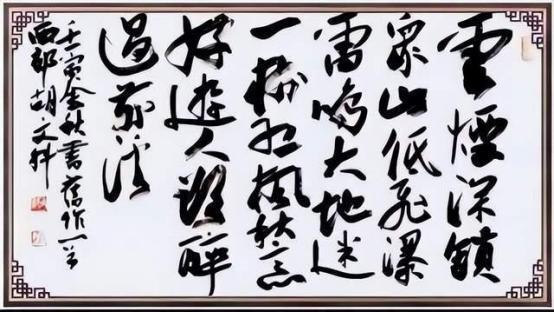 雲煙深鎖
衆山低飛瀑
雷鳴大地迷
一樹紅楓秋意
好遊人醉
過前溪
壬寅金秋書舊作一首
西部胡文科